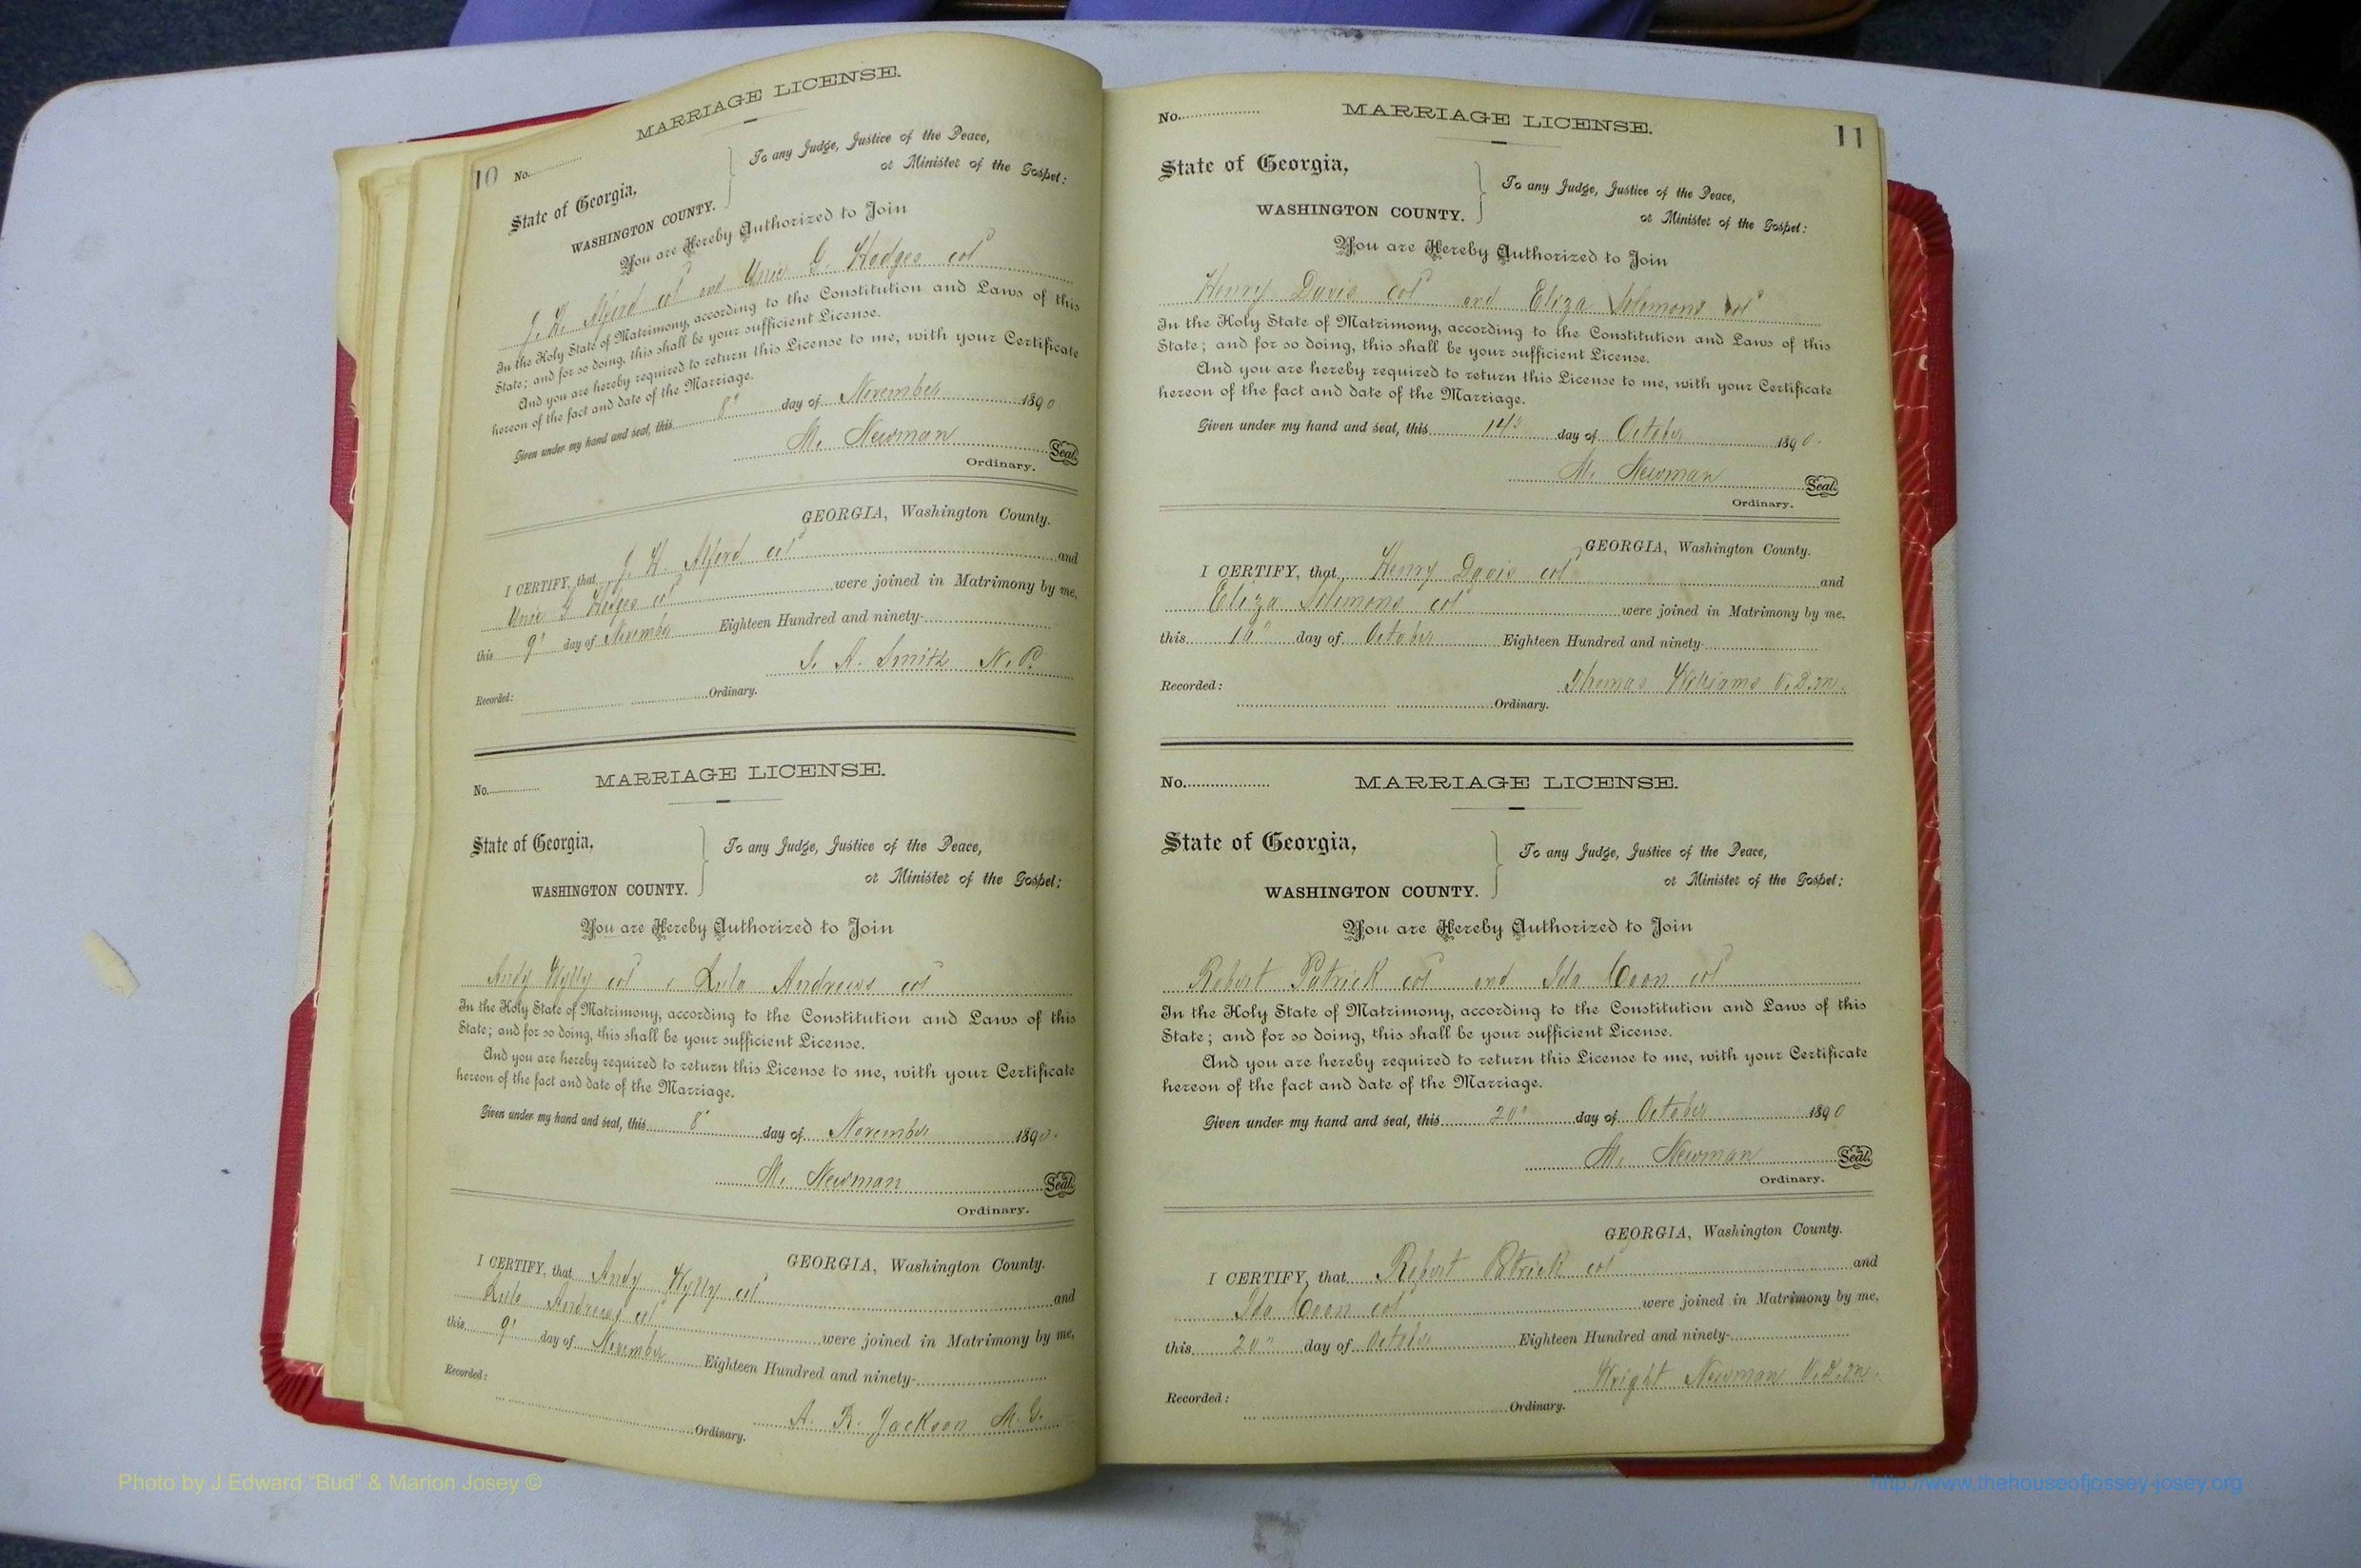 10 No.
MARRIAGE LICENSE.
State of Georgia,
WASHINGTON COUNTY.
To any Judge, Justice of the Peace,
or Minister of the Gospel:
You are Hereby Authorized to Join
J. H. Alford col and Unie G. Hodges col
In the Holy State of Matrimony, according to the Constitution and Laws of this
State; and for so doing, this shall be your sufficient License.
And you are hereby required to return this License to me, with your Certificate
hereon of the fact and date of the Marriage.
Given under my hand and seal, this 8" day of November 1890
M. Newman Seal.
Ordinary.
GEORGIA, Washington County.
I CERTIFY, that J. H. Alford col and
Unie G Hodges col were joined in Matrimony by me,
this 9" day of November Eighteen Hundred and ninety-
S. A. Smith N. P.
Recorded: Ordinary.
No. MARRIAGE LICENSE.
State of Georgia,
WASHINGTON COUNTY.
To any Judge, Justice of the Peace,
or Minister of the Gospel:
You are Hereby Authorized to Join
Andy Wylly col & Lula Andrews col
In the Holy State of Matrimony, according to the Constitution and Laws of this
State; and for so doing, this shall be your sufficient License.
And you are hereby required to return this License to me, with your Certificate
hereon of the fact and date of the Marriage.
Given under my hand and seal, this 8" day of November 1890.
M. Newman Seal.
Ordinary.
GEORGIA, Washington County.
I CERTIFY, that Andy Wylly col and
Lula Andrews col were joined in Matrimony by me,
this 9" day of November Eighteen Hundred and ninety-
A. R. Jackson M. G.
Recorded: Ordinary.
No. MARRIAGE LICENSE. 11
State of Georgia,
WASHINGTON COUNTY.
To any Judge, Justice of the Peace,
or Minister of the Gospel:
You are Hereby Authorized to Join
Henry Davis col and Eliza Solomons col
In the Holy State of Matrimony, according to the Constitution and Laws of this
State; and for so doing, this shall be your sufficient License.
And you are hereby required to return this License to me, with your Certificate
hereon of the fact and date of the Marriage.
Given under my hand and seal, this 14" day of October 1890.
M. Newman Seal.
Ordinary.
GEORGIA, Washington County.
I CERTIFY, that Henry Davis col and
Eliza Solomons col were joined in Matrimony by me,
this day of October Eighteen Hundred and ninety-
Thomas Williams V.D.M.
Recorded: Ordinary.
No. MARRIAGE LICENSE.
State of Georgia,
WASHINGTON COUNTY.
To any Judge, Justice of the Peace,
or Minister of the Gospel:
You are Hereby Authorized to Join
Robert Patrick col and Ida Coon col
In the Holy State of Matrimony, according to the Constitution and Laws of this
State; and for so doing, this shall be your sufficient License.
And you are hereby required to return this License to me, with your Certificate
hereon of the fact and date of the Marriage.
Given under my hand and seal, this 20" day of October 1890
M. Newman Seal.
Ordinary.
GEORGIA, Washington County.
I CERTIFY, that Robert Patrick col and
Ida Coon col were joined in Matrimony by me,
this 20" day of October Eighteen Hundred and ninety-
Wright Newman V.D.M.
Recorded: Ordinary.
Photo by J Edward “Bud” & Marion Josey ©
http://www.thehouseofjossey-josey.org